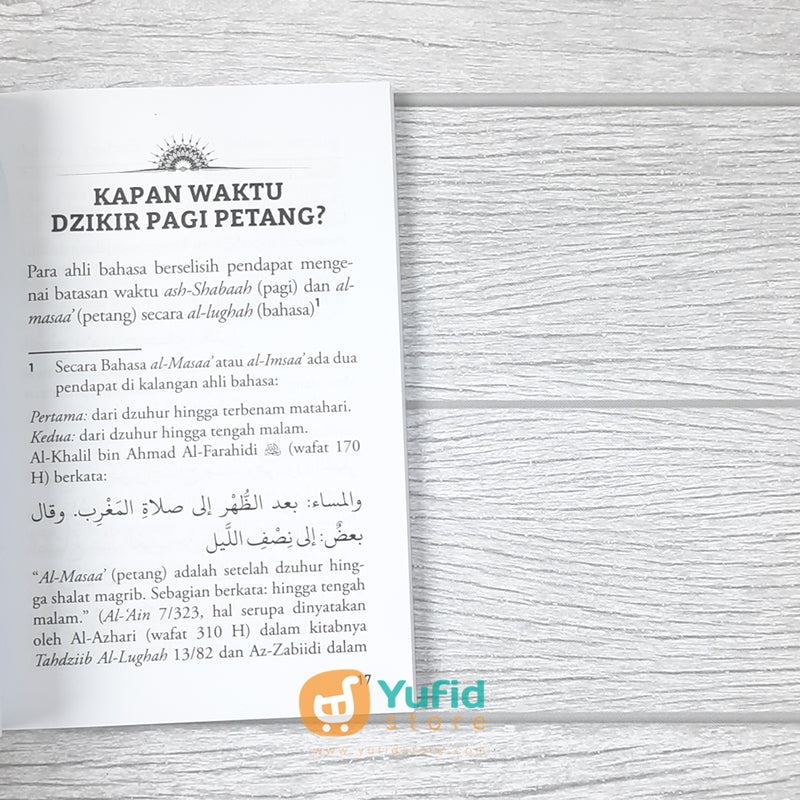 KAPAN WAKTU
DZIKIR PAGI PETANG?
Para ahli bahasa berselisih pendapat menge-
nai batasan waktu ash-Shabaah (pagi) dan al-
masaa’ (petang) secara al-lughah (bahasa)1
1 Secara Bahasa al-Masaa’ atau al-Imsaa’ ada dua
pendapat di kalangan ahli bahasa:
Pertama: dari dzuhur hingga terbenam matahari.
Kedua: dari dzuhur hingga tengah malam.
Al-Khalil bin Ahmad Al-Farahidi (wafat 170
H) berkata:
والمساء: بعد الظُّهْر إلى صلاةِ المَغْرِب. وقال
بعضٌ: إلى نِصْفِ اللَّيل
“Al-Masaa’ (petang) adalah setelah dzuhur hing-
ga shalat magrib. Sebagian berkata: hingga tengah
malam.” (Al-‘Ain 7/323, hal serupa dinyatakan
oleh Al-Azhari (wafat 310 H) dalam kitabnya
Tahdziib Al-Lughah 13/82 dan Az-Zabiidi dalam
17
Yufid
store
www.yufidstore.com